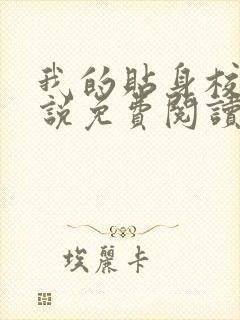 我的貼身校
說免費閱讀
埃麗卡